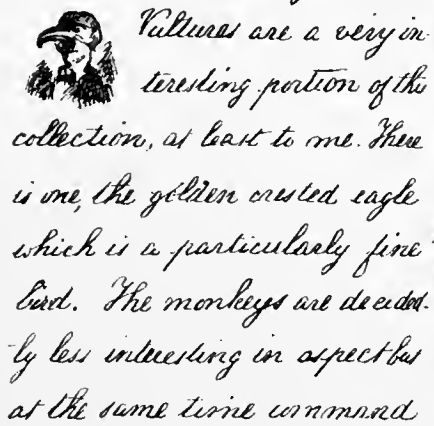 Vultures are a very in-
teresting portion of the
collection, at least to me. There
is one, the golden crested eagle
which is a particularly fine
bird. The monkeys are decided-
ly less interesting in aspect but
at the same time command